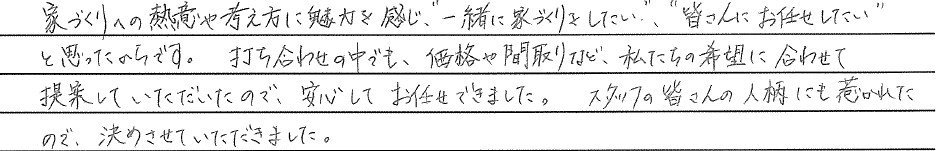 家づくりへの熱意や考え方に魅力を感じ、“一緒に家づくりをしたい”、“皆さんにお任せしたい”
と思ったからです。 打ち合わせの中でも、価格や間取りなど、私たちの希望に合わせて
提案していただいたので、安心してお任せできました。 スタッフの皆さんの人柄にも惹かれた
ので、決めさせていただきました。